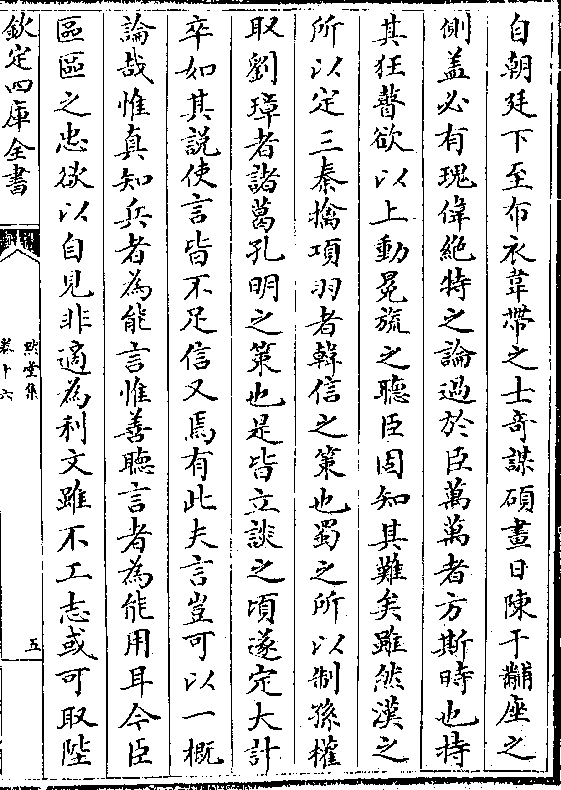 自朝廷下至布衣韋帶之士奇謀碩畫日陳于黼座之
側盖必有瑰偉絶特之論過於臣萬萬者方斯時也持
其狂瞽欲以上動冕旒之聽臣固知其難矣雖然漢之
所以定三秦擒項羽者韓信之策也蜀之所以制孫權
取劉璋者諸葛孔明之策也是皆立談之頃遂定大計
卒如其說使言皆不足信又焉有此夫言豈可以一概
論哉惟真知兵者為能言惟善聽言者為能用耳今臣
區區之忠欲以自見非適為利文雖不工志或可取陛
欽定四庫全書
堂集
卷十六
五